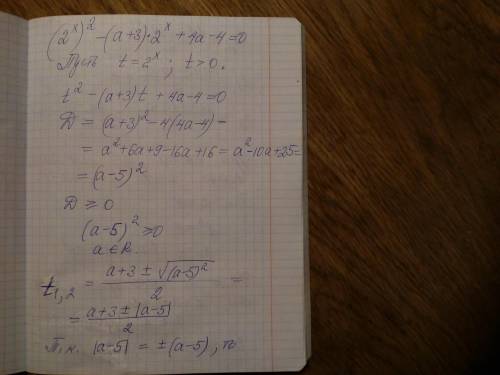 (2ˣ)² - (a+3)·2ˣ + 4a-4=0
Пусть t=2ˣ; t>0.
t² - (a+3)t + 4a-4=0
D = (a+3)² - 4(4a-4) =
= a²+6a+9-16a+16 = a²-10a+25=
= (a-5)²
D ⩾ 0
(a-5)² ⩾0
a∈R.
t₁,₂ = (a+3 ± √(a-5)²)/2 =
= (a+3 ± |a-5|)/2
Т.к. |a-5| = ±(a-5), то